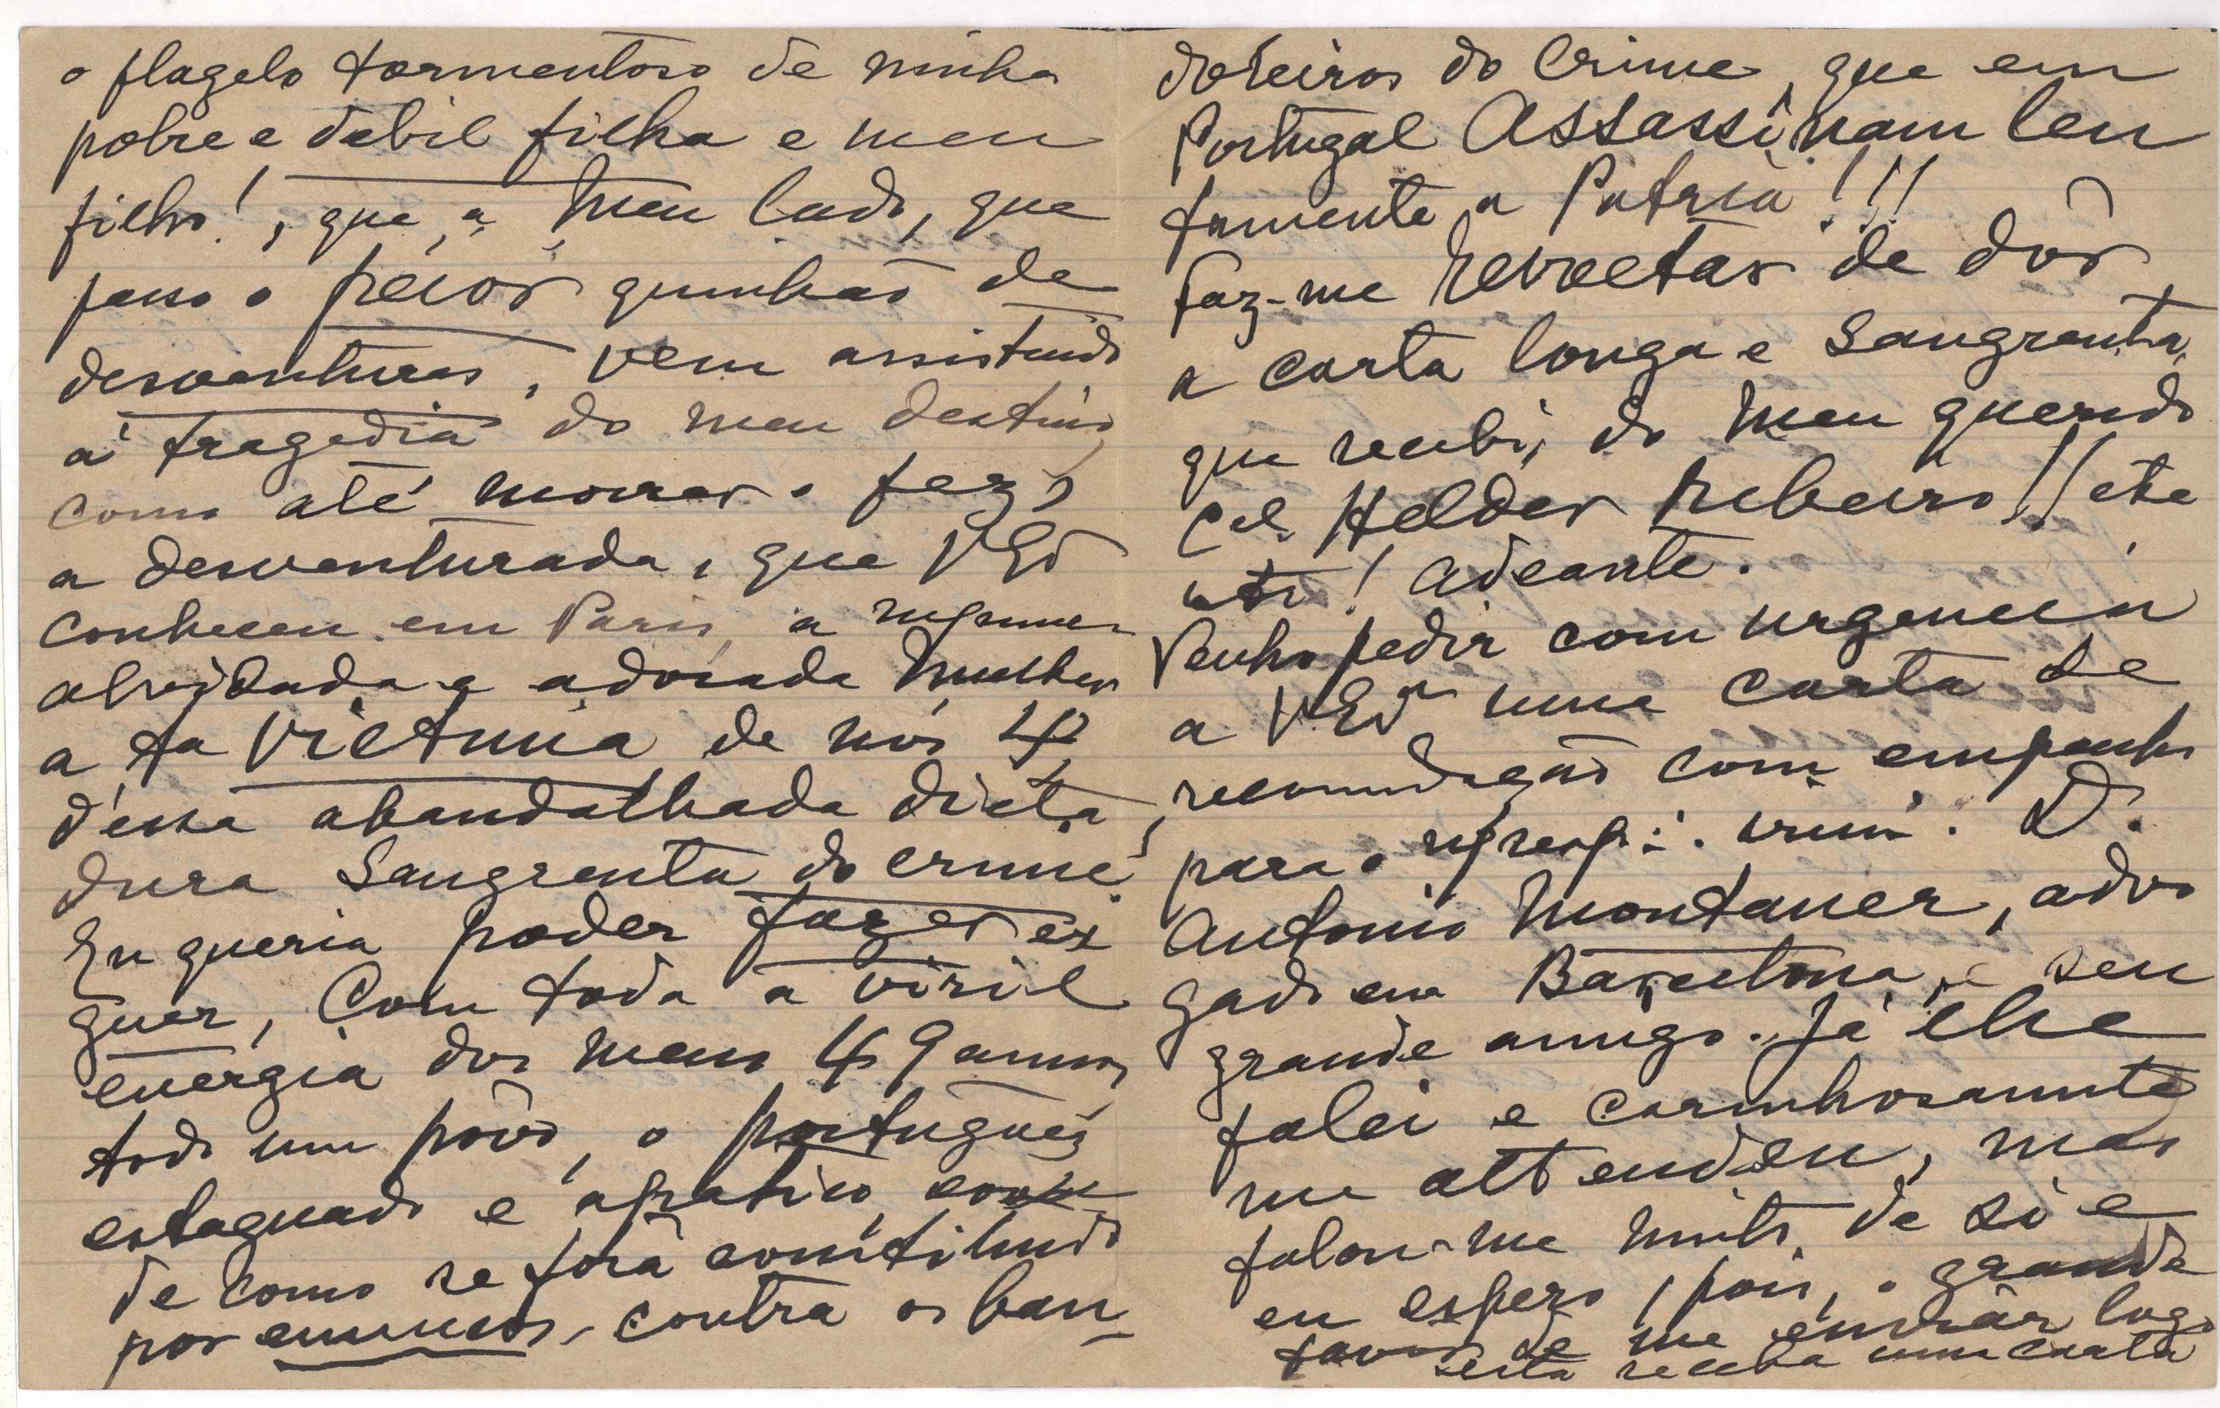 o flagelo tormentoso de minha
pobre e debil filha e meu
filho!, que a meu lado, que
passo o peior quinhão de
desventuras, vem assistindo
á tragedia do meu destino,
como até morrer o fez,
a desventurada, que VExª
conheceu em Paris, a
e adorada mulher
a 1ª victima de nós 4
d'essa abandalhada dicta
dura sangrenta do crime.
Eu queria poder fazer er
guer, com toda a viril
energia dos meus 49 annos,
todo um pôvo, o português
estagnado e apatico,
de como se fora constituido
por eunucos, contra os ban
doleiros do crime, que em
Portugal assassinam len
tamente a Patria!!!
Faz-me revoltar de dôr
a carta longa e sangrenta,
que recebi, do meu querido
Cel. Helder Ribeiro!! etc
etc! Adeante.
Venho pedir com urgencia
a VExª uma carta de
recomendação com empenho
para o D.
Antonio Montaner, advo
gado em Barcelona, e seu
grande amigo. Já lhe
falei e carinhosamente
me attendeu, mas
falou-me muito de si e
eu espero, pois, o grande
favor de me enviar logo
esta receba uma carta